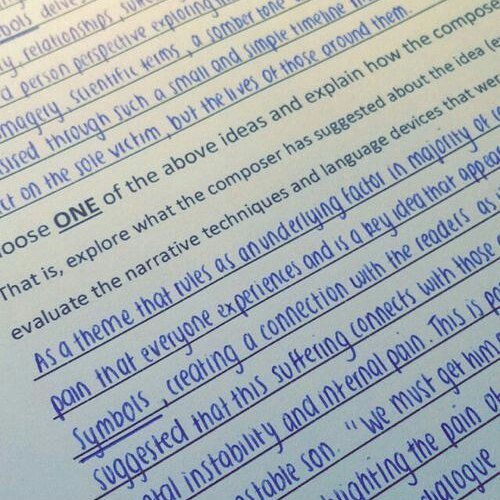 bols delves
y, relationships, suffe
d person perspective exploring
imagery, scientific terms, a somber tone
sised through such a small and simple timeline
ct on the sole victim, but the lives of those around them.
oose ONE of the above ideas and explain how the compose
That is, explore what the composer has suggested about the idea
evaluate the narrative techniques and language devices that we
As a theme that rules as an underlying factor in majority of
pain that everyone experiences and is a key idea that appea
Symbols, creating a connection with the readers as
suggested that this suffering connects with those
tal instability and internal pain. This is
stable son. "We must get him
the pain of
alogue